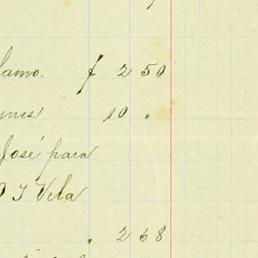 lamo. f 2 50
10 "
José para
O J Vila
" 2 68